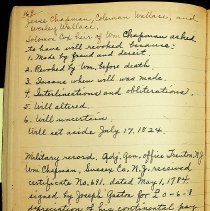 163.
Jesse Chapman, Coleman Wallace, and
Wesley Wallace,
Solomon Cox heir of Wm Chapman asked
to have will revoked because:
1. Made by fraud and deceit
2. Revoked by Wm. before death
3. Insane when will was made.
4. Interlineations and obliterations.
5. Will altered.
6. Will uncertain.
Will set aside July 17. 1824.
Military record, Adj. Gen. office Trenton N.J.
Wm Chapman, Sussex Co. N.J. received
certificate No. 681, dated May 1, 1784
signed by Joseph Gaston for £0-6-8
depreciation of his continental pay